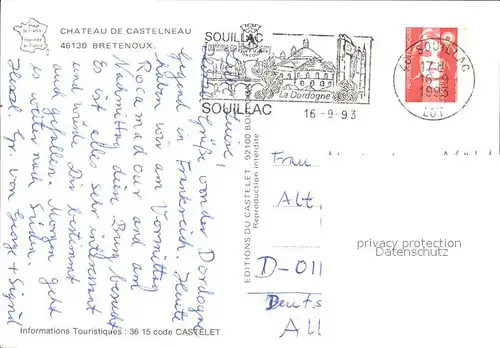 CHATEAU DE CASTELNEAU
46130 BRETENOUX
SOUILLAC
La Dordogne
SOUILLAC
16-9-93
46 SOUILLAC
17H
16-9
1993
LOT
liebe Grüße von der Dordogne
Gegend in Frankreich. Heute
haben wir am Vormittag
Rocamadour und am
Nachmittag diese Burg besucht
Es ist alles sehr interessant
und würde Dir bestimmt
auch gefallen. Morgen geht
es weiter nach Süden.
Herzl. Gr von George + Sigrid
EDITIONS DU CASTELET 92100 BO
Reproduction interdite
Frau
Alt.
D-011
Deuts
All
privacy protection
Datenschutz
Informations Touristiques : 36 15 code CASTELET